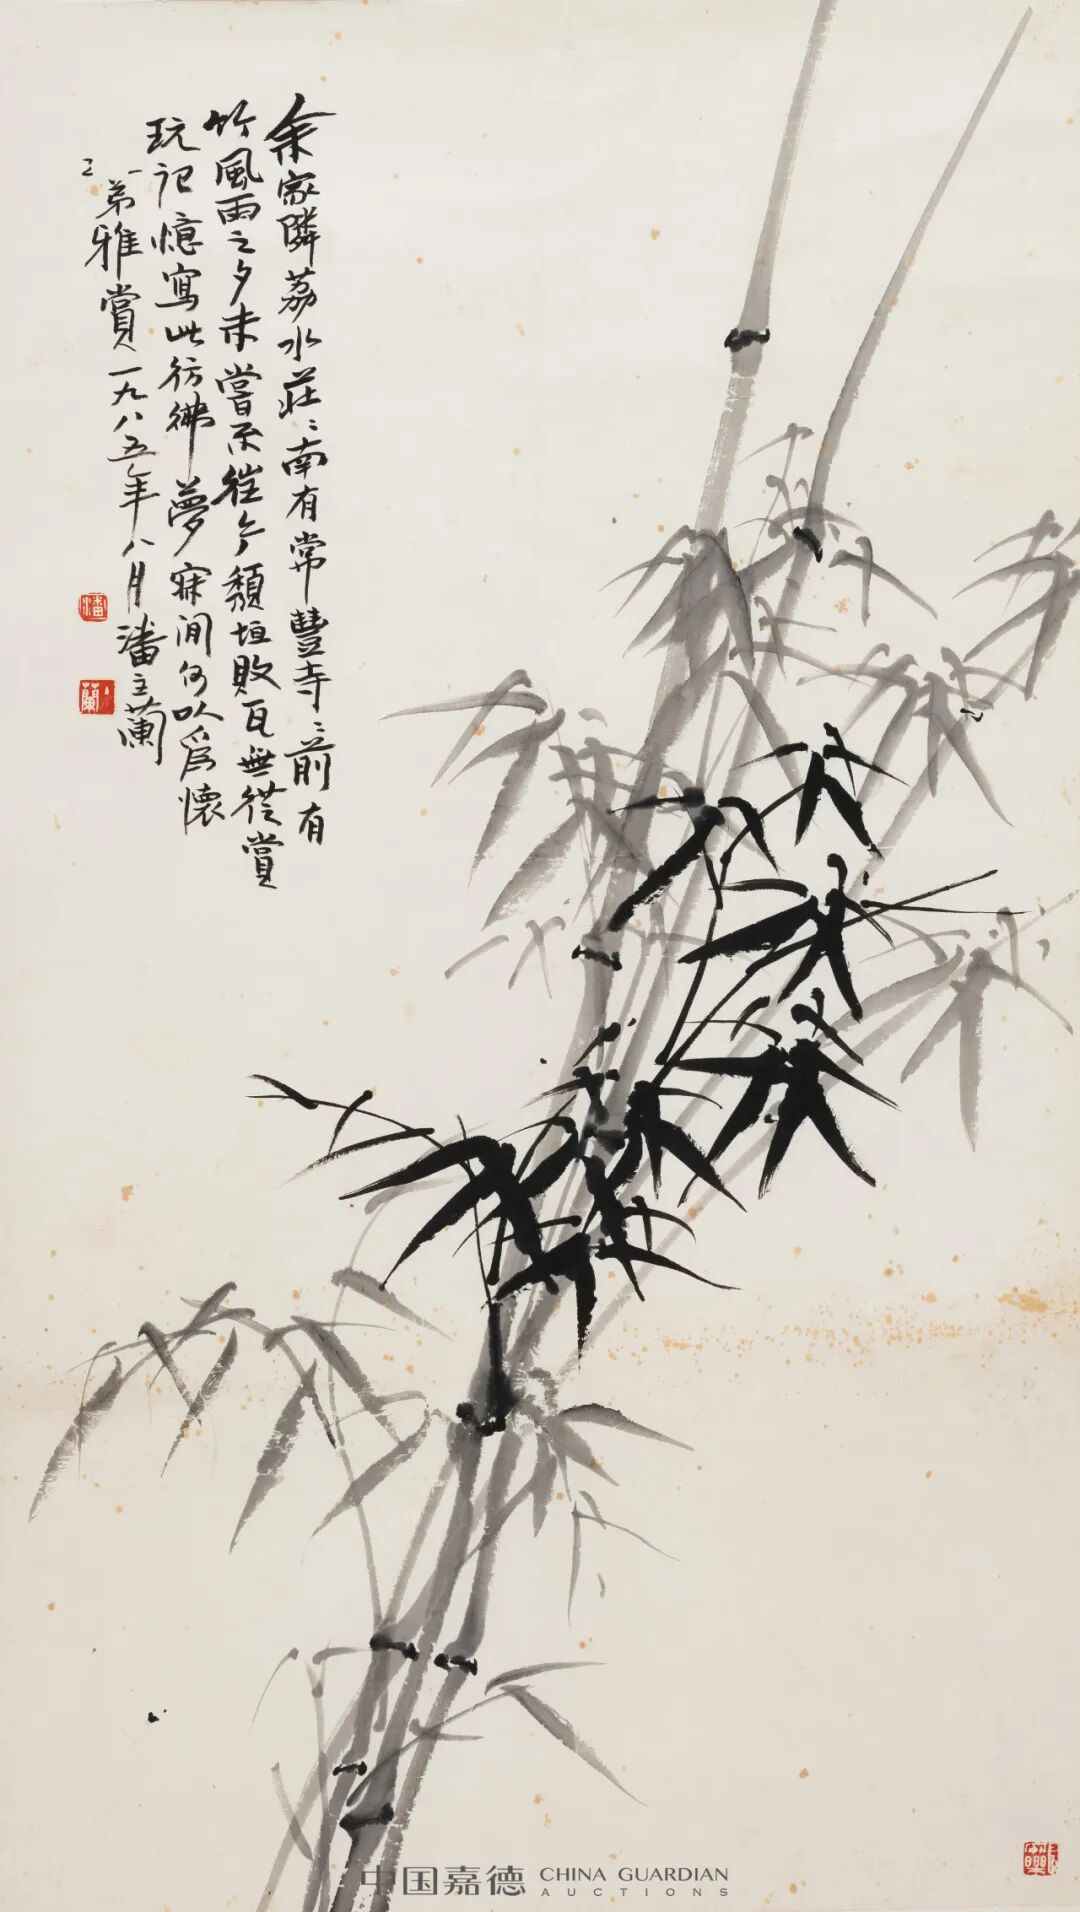 余家隣荔水莊〻南有常豐寺〻前有
竹風雨之夕未嘗不往今頹垣敗瓦無從賞
玩記憶寫此彷彿夢寐間何以爲懷
弟雅賞一九八五年八月潘主蘭
潘
蘭
中国嘉德 CHINA GUARDIAN
AUCTIONS